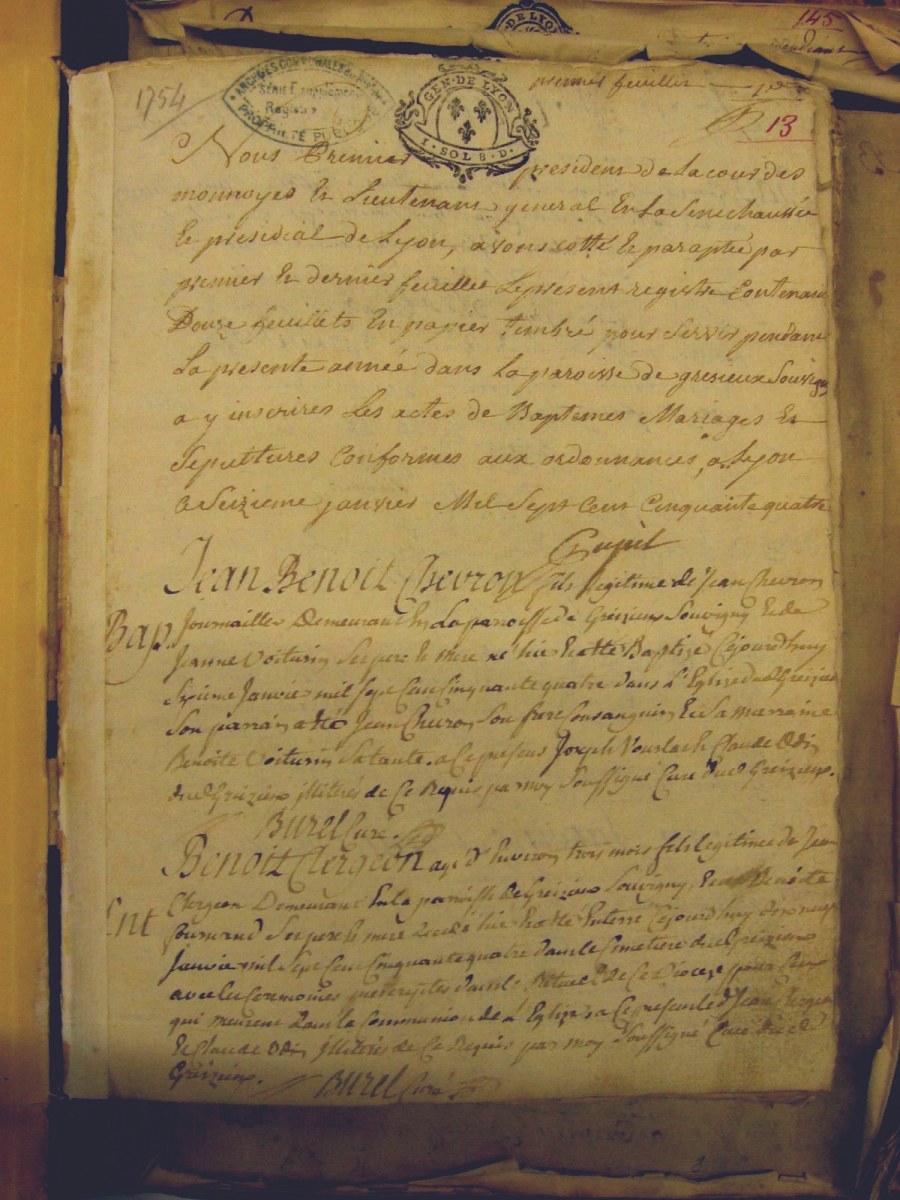 145
DE LYON
1754
ARCHIVES COMMUNALES
Série Supplément
Registre
PROPRIÉTÉ PUBLIQUE
GEN. DE LYON
1. SOL 8. D.
premier feuillet
13
Nous Premier president de La cour des
monnoyes Et Lieutenant general En La Senechaussée
Et presidial de Lyon, avons cotté Et paraphé par
premier Et dernier feuillet Le present registre Contenant
Douze feuillets En papier timbré pour Servir pendant
La presente année dans La paroisse de gresieux Souvigny
a y inscrires Les actes de Baptemes Mariages Et
Sepultures Conformes aux ordonnances, a Lyon
Ce Seizieme janvier Mil Sept Cent Cinquante quatre
Pupil
Jean Benoit Chevron fils legitime de Jean Chevron
Bap. Journaillier Demeurant En La paroisse de Greizieux Souvigny Et de
Jeanne Voiturin Ses pere Et mere né hier Et a été Baptisé Cejourdhuy
Janvier mil Sept Cent Cinquante quatre dans L'Eglise dud Greizieux
Son parrain a été Jean Chevron Son frere Consanguin Et Sa marraine
Benoite Voiturin Sa tante. a Ce presens Joseph Et Claude Odin
dud Greizieux illiterés de Ce Requis par moy Soussigné Curé dud Greizieux.
Burel Curé.
Benoit Clergeon agé D'Environ trois mois fils legitime de Jean
Clergeon Demeurant En La paroisse de Greizieux Souvigny, Et de Benoite
Ent Ses pere Et mere decedé hier Et a été Enterré Cejourdhuy dix neuf
Janvier mil Sept Cent Cinquante quatre dans le Cimetiere dud Greizieux
avec les Ceremonies prescrites dans le Rituel de Ce Diocese pour Ceux
qui meurent dans la Communion de L'Eglise a Ce presents Jean Clergeon
Et Claude Odin illiterés de Ce Requis par moy Soussigné Curé dud
Greizieux.
Burel Curé